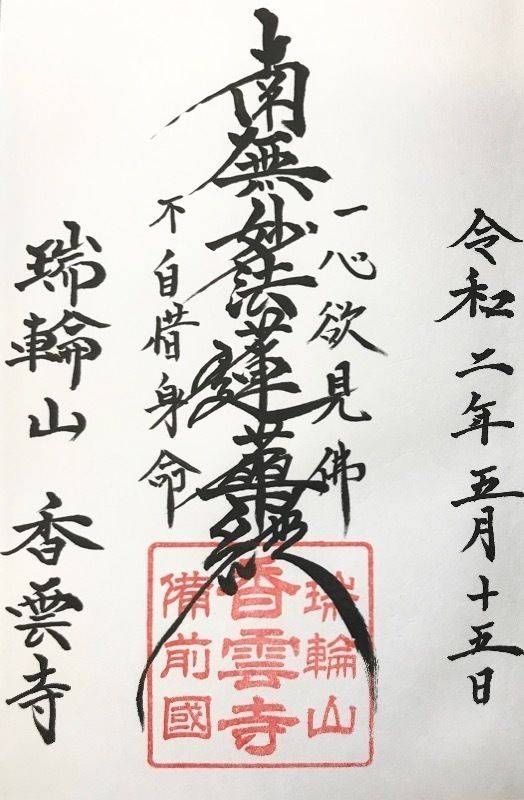 令和二年五月十五日
一心欲見佛
南無妙法蓮華経
不自惜身命
瑞輪山 香雲寺
瑞輪山
香雲寺
備前國